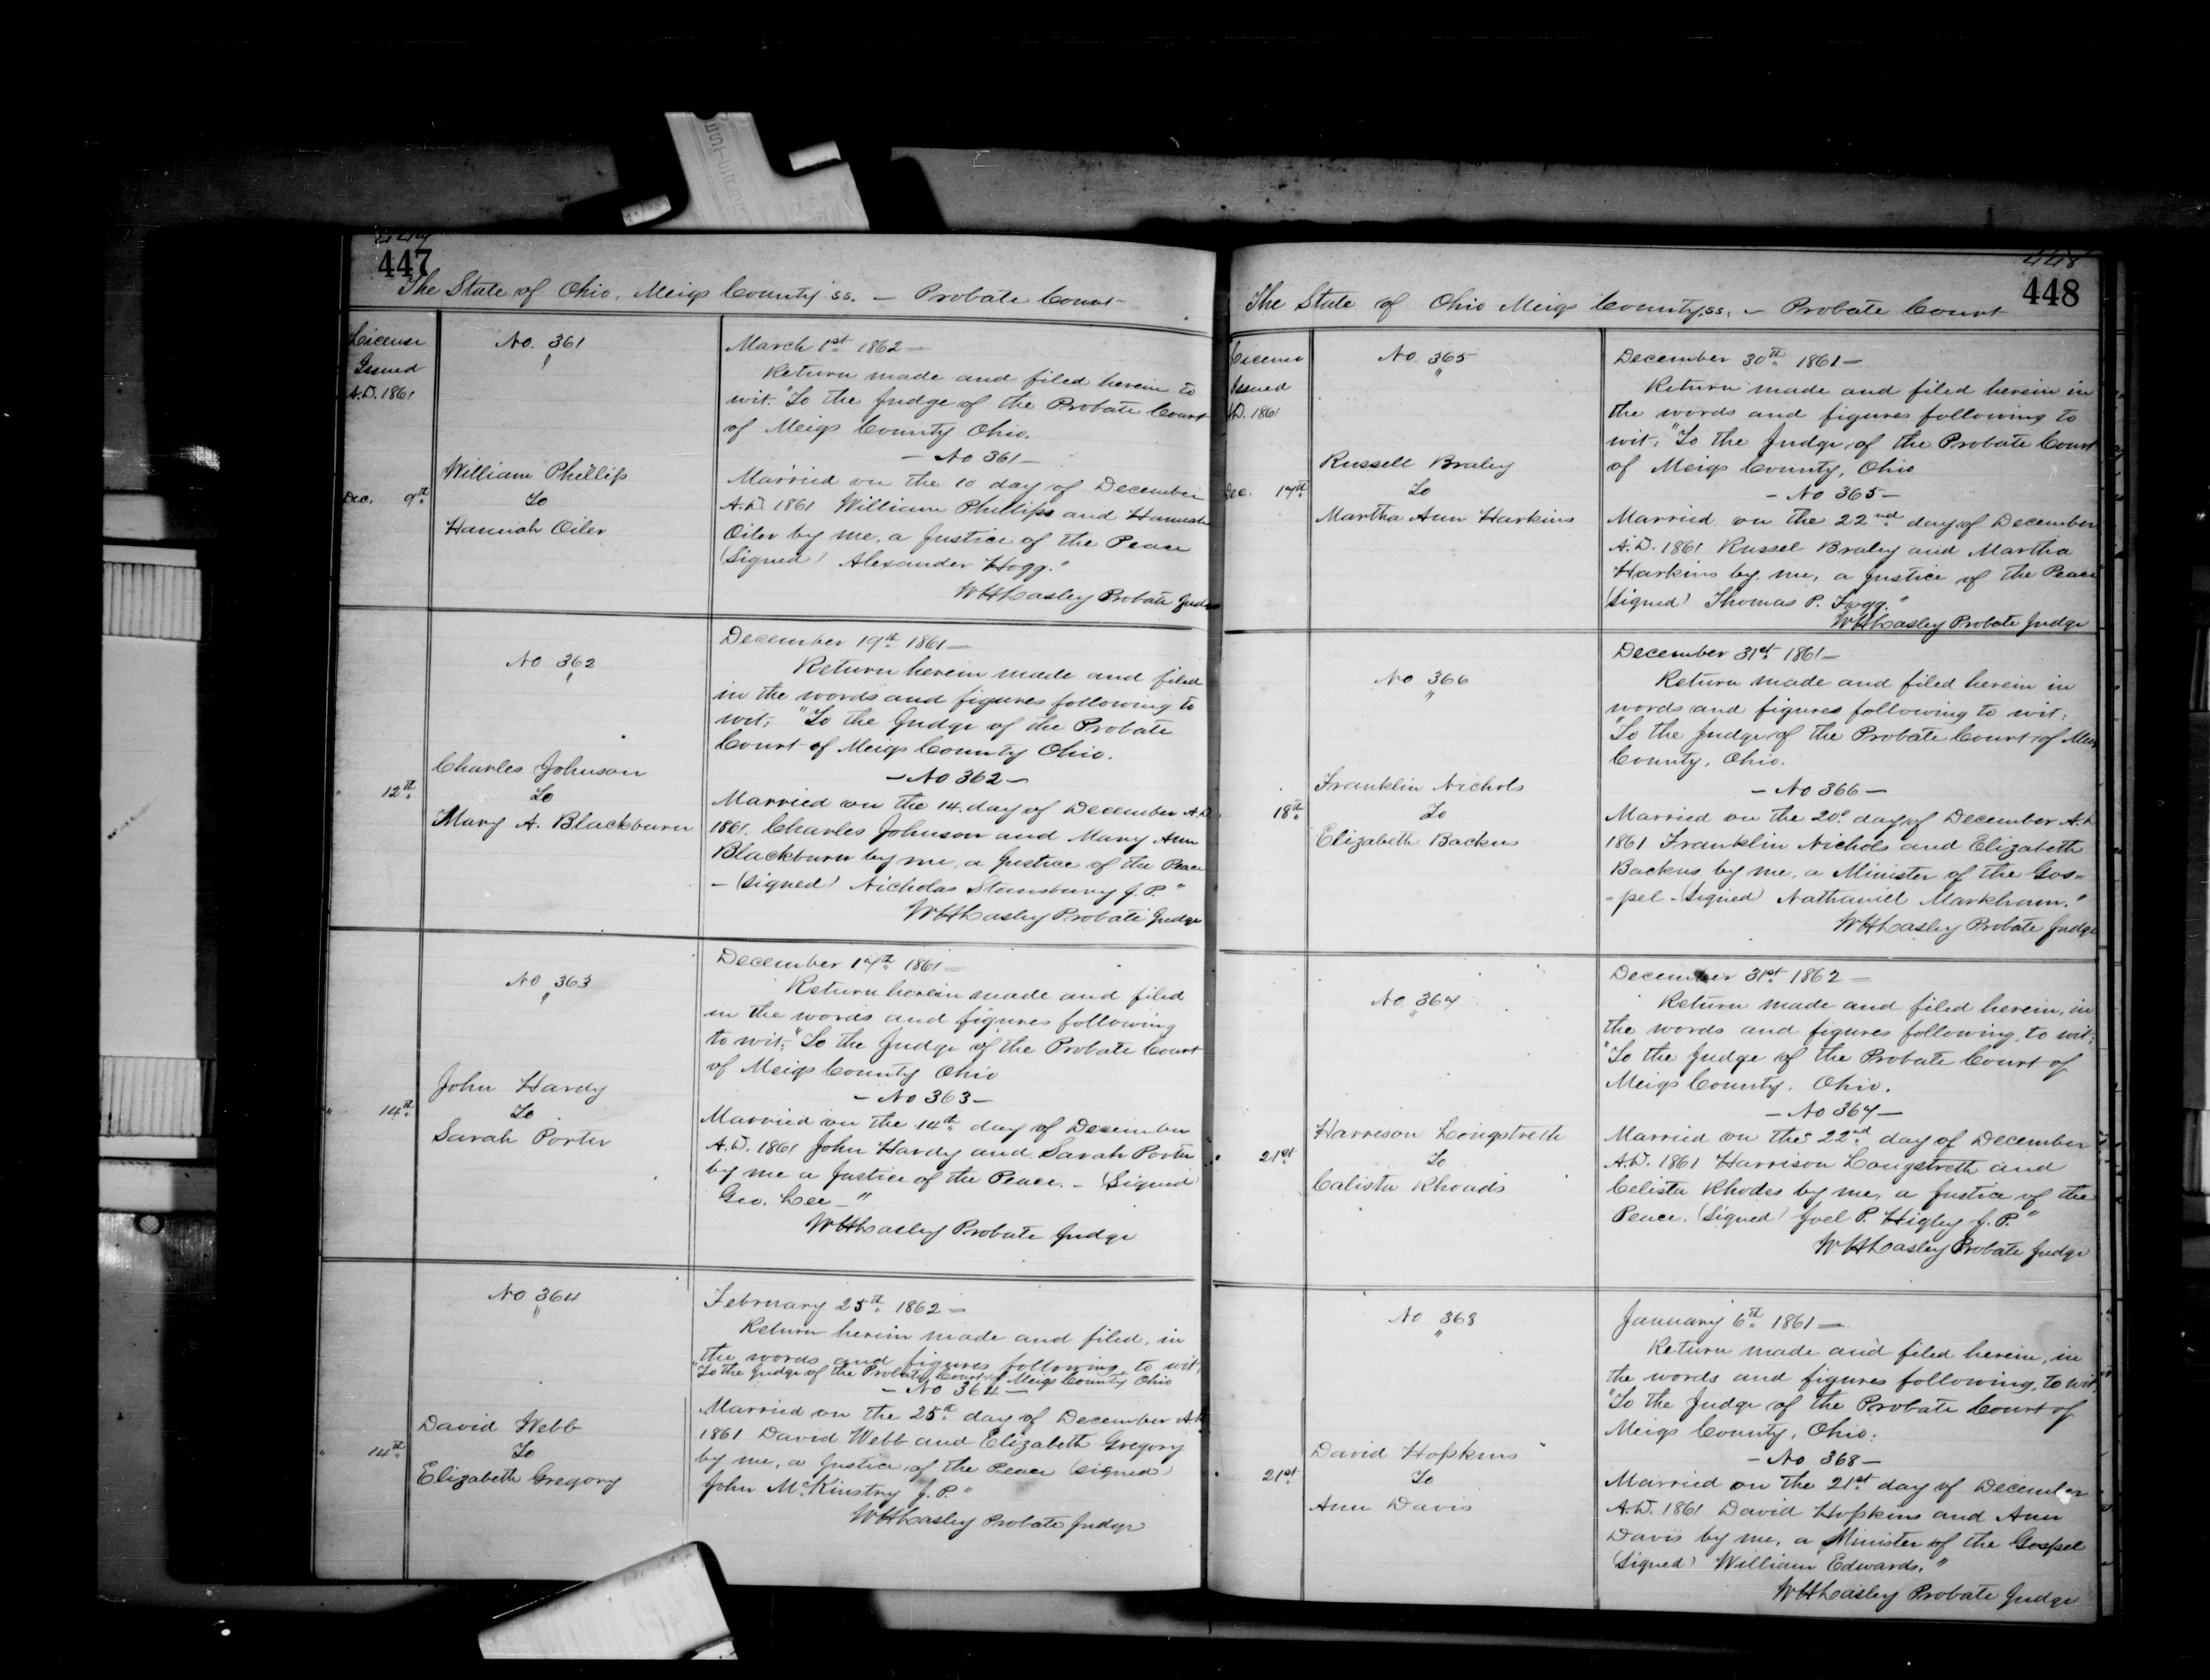 447
The State of Ohio, Meigs County ss. — Probate Court
License
Issued
A.D. 1861
No. 361
"
Dec. 9th
William Phillips
To
Hannah Oiler
March 1st 1862 —
Return made and filed herein to
wit: "To the Judge of the Probate Court
of Meigs County Ohio.
— No 361 —
Married on the 10 day of December
A.D. 1861 William Phillips and Hannah
Oiler by me, a Justice of the Peace
(Signed) Alexander Hogg."
Probate Judge
No 362
"
12th
Charles Johnson
To
Mary A. Blackburn
December 19th 1861 —
Return herein made and filed
in the words and figures following to
wit; "To the Judge of the Probate
Court of Meigs County Ohio.
— No 362 —
Married on the 14. day of December A.D.
1861. Charles Johnson and Mary Ann
Blackburn by me, a Justice of the Peace
— (Signed) Nicholas Stansbury J. P."
Probate Judge
No 363
"
" 14th
John Hardy
To
Sarah Porter
December 17th 1861 —
Return herein made and filed
in the words and figures following
to wit; "To the Judge of the Probate Court
of Meigs County Ohio
— No 363 —
Married on the 14th day of December
A.D. 1861 John Hardy and Sarah Porter
by me a Justice of the Peace. — (Signed
Geo. Lee — "
Probate Judge
No 364
"
" 14th
David Webb
To
Elizabeth Gregory
February 25th 1862 —
Return herein made and filed, in
the words and figures following to wit,
"To the Judge of the Probate Court of Meigs County Ohio
— No 364 —
Married on the 25th day of December A.D.
1861 David Webb and Elizabeth Gregory
by me, a Justice of the Peace (signed)
John McKinstry J. P."
Probate Judge
448
448
The State of Ohio Meigs County, ss. — Probate Court
License
Issued
A.D. 1861
No 365
"
Dec. 17th
Russell Braley
To
Martha Ann Harkins
December 30th 1861 —
Return made and filed herein in
the words and figures following to
wit: "To the Judge of the Probate Court
of Meigs County, Ohio
— No 365 —
Married on the 22nd day of December
A.D. 1861 Russel Braley and Martha
Harkins by me, a Justice of the Peace
(Signed) Thomas P. Fogg."
Probate Judge
No 366
"
18th
Franklin Nichols
To
Elizabeth Backus
December 31st 1861 —
Return made and filed herein in
words and figures following to wit:
"To the Judge of the Probate Court of Meigs
County, Ohio.
— No 366 —
Married on the 20" day of December A.D
1861 Franklin Nichols and Elizabeth
Backus by me, a Minister of the Gos-
-pel — (Signed) Nathaniel Markham."
Probate Judge
No 367
"
21st
Harrison Longstreth
To
Calista Rhoads
December 31st 1862 —
Return made and filed herein, in
the words and figures following, to wit;
"To the Judge of the Probate Court of
Meigs County, Ohio.
— No 367 —
Married on the 22nd day of December
A.D. 1861 Harrison Longstreth and
Celista Rhodes by me, a Justice of the
Peace. (Signed) Joel P. Higley J. P."
Probate Judge
No 368
"
21st
David Hopkins
To
Ann Davis
January 6th 1861 —
Return made and filed herein, in
the words and figures following, to wit,
"To the Judge of the Probate Court of
Meigs County, Ohio:
— No 368 —
Married on the 21st day of December
A.D. 1861 David Hopkins and Ann
Davis by me, a Minister of the Gospel
(Signed) William Edwards."
Probate Judge